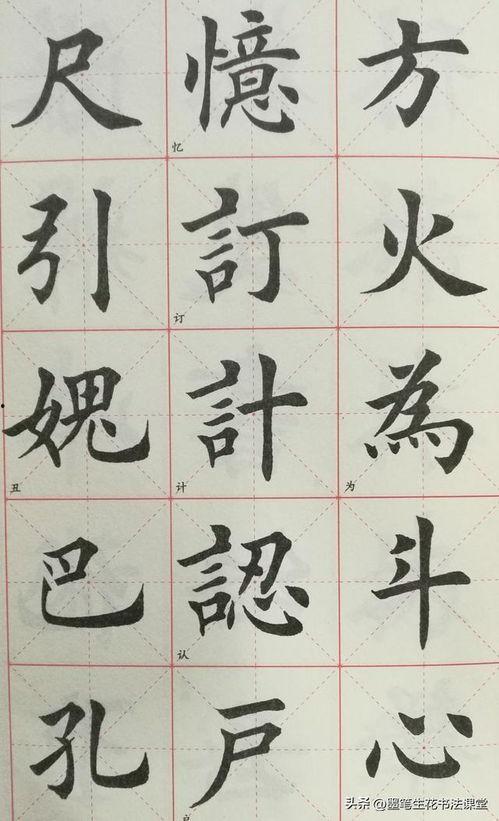 方火為斗心
为
憶訂計認戸
忆
订
计
认
尺引媿巴孔
丑
头条 @墨笔生花书法课堂